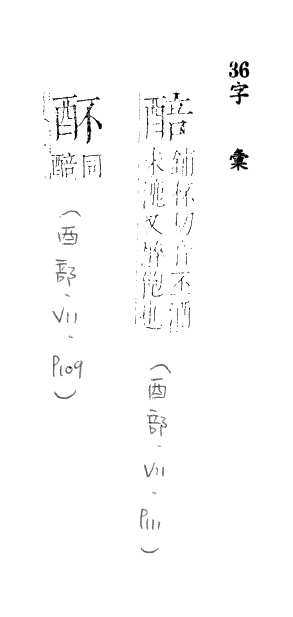 36字 彙
醅
鋪杯切音丕酒
未漉又醉飽也
(酉部.VII.P111)
同
醅
(酉部.VII.P109)